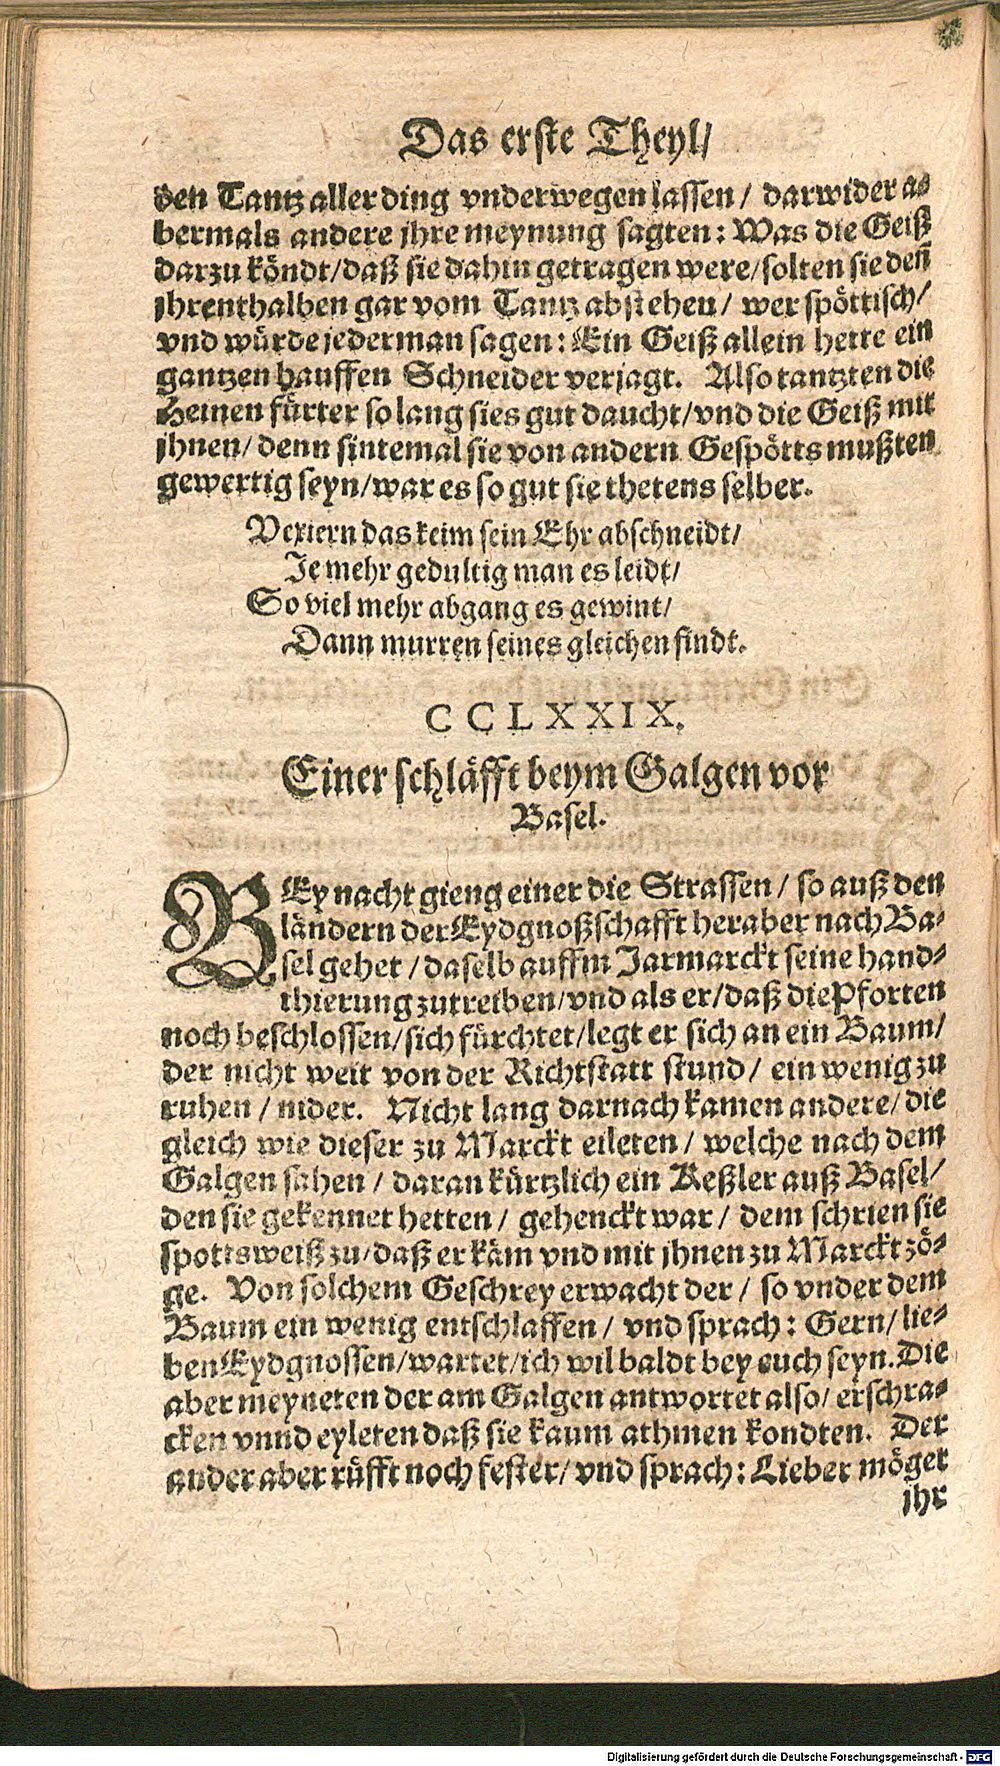 Das erste Theyl/
den Tantz aller ding vnderwegen lassen / darwider a-
bermals andere jhre meynung sagten: Was die Geiß
darzu köndt/daß sie dahin getragen were/solten sie deñ
jhrenthalben gar vom Tantz abstehen/ wer spöttisch/
vnd würde jederman sagen: Ein Geiß allein hette ein
gantzen hauffen Schneider verjagt. Also tantzten die
Hemen fürter so lang sies gut daucht/vnd die Geiß mit
jhnen/ denn sintemal sie von andern Gespötts mußten
gewertig seyn/war es so gut sie thetens selber.
Vexiern das keim sein Ehr abschneidt/
Je mehr gedultig man es leidt/
So viel mehr abgang es gewint/
Dann murren seines gleichen findt.
CCLXXIX.
Einer schläfft beym Galgen vor
Basel.
BEy nacht gieng einer die Strassen / so auß den
ländern der Eydgnoßschafft heraber nach Ba-
sel gehet / daselb auffm Jarmarckt seine hand-
thierung zutreiben/vnd als er/daß die Pforten
noch beschlossen/sich fürchtet/legt er sich an ein Baum/
der nicht weit von der Richtstatt stund / ein wenig zu
ruhen / nider. Nicht lang darnach kamen andere/ die
gleich wie dieser zu Marckt eileten / welche nach dem
Galgen sahen / daran kürtzlich ein Keßler auß Basel/
den sie gekennet hetten / gehenckt war / dem schrien sie
spottsweiß zu/daß er käm vnd mit jhnen zu Marckt zö-
ge. Von solchem Geschrey erwacht der / so vnder dem
Baum ein wenig entschlaffen / vnd sprach: Gern/ lie-
ben Eydgnossen/wartet/ich wil baldt bey euch seyn. Die
aber meyneten der am Galgen antwortet also/ erschra-
cken vnnd eyleten daß sie kaum athmen kondten. Der
ander aber rüfft noch fester/ vnd sprach: Lieber möget
jhr
Digitalisierung gefördert durch die Deutsche Forschungsgemeinschaft - DFG